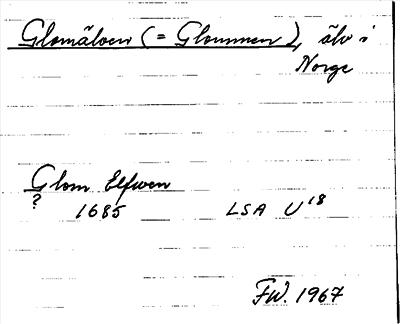 Glomälven (= Glommen), älv i
Norge
Glom Elfwen
?
1685 LSA U18
FW. 1967